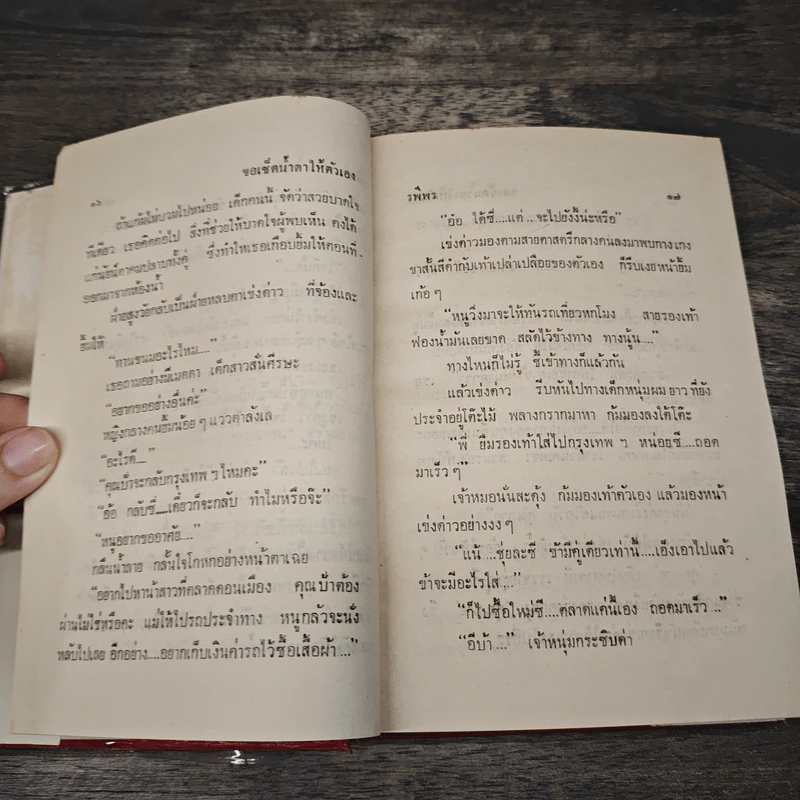 ๑๖
ขอเช็ดน้ำตาให้ตัวเอง
ถ้าแก้มไม่บวมไปหน่อย เด็กคนนี้ จัดว่าสวยบาดใจ
ทีเดียว เธอคิดต่อไป สิ่งที่ช่วยให้บาดใจผู้พบเห็น คงได้
แก่นัยน์ตาคมปลาบทั้งคู่ ซึ่งทำให้เธอเกือบยิ้มให้ตอนที่
ออกมาจากห้องน้ำ
ฝ่ายสูงวัยกลับเป็นฝ่ายหลบตาเข่งด่าว ที่จ้องและ
ยิ้มให้
“ทานขนมอะไรไหม....”
เธอถามอย่างมีเมตตา เด็กสาวสั่นศีรษะ
“อยากขออย่างอื่นค่ะ”
หญิงกลางคนยิ้มน้อย ๆ แววตาลังเล
“อะไรดี....”
“คุณป้าจะกลับกรุงเทพ ฯ ไหมคะ”
“อ้อ กลับซี่....เดี๋ยวก็จะกลับ ทำไมหรือจ๊ะ”
“หนูอยากขออาศัย....”
กลืนน้ำลาย กลั้นใจโกหกอย่างหน้าตาเฉย
“อยากไปหาน้าสาวที่ตลาดดอนเมือง คุณป้าต้อง
ผ่านไม่ใช่หรือคะ แม่ให้ไปรถประจำทาง หนูกลัวจะนั่ง
หลับไปเลย อีกอย่าง....อยากเก็บเงินค่ารถไว้ซื้อเสื้อผ้า....”
รพีพร
๑๗
“อ้อ ได้ซี่....แต่...จะไปยังงี้น่ะหรือ”
เข่งด่าวมองตามสายตาสตรีกลางคนลงมาพบกางเกง
ขาสั้นสีดำกับเท้าเปล่าเปลือยของตัวเอง ก็รีบเงยหน้ายิ้ม
เก้อ ๆ
“หนูวิ่งมาจะให้ทันรถเที่ยวหกโมง สายรองเท้า
ฟองน้ำมันเลยขาด สลัดไว้ข้างทาง ทางนู้น....”
ทางไหนก็ไม่รู้ ชี้เข้าทางก็แล้วกัน
แล้วเข่งด่าว รีบหันไปทางเด็กหนุ่มผมยาว ที่ยัง
ประจำอยู่โต๊ะไม้ พลางกรากมาหา ก้มมองลงใต้โต๊ะ
“พี่ ยืมรองเท้าใส่ไปกรุงเทพ ฯ หน่อยซี....ถอด
มาเร็ว ๆ”
เจ้าหมอนั่นสะดุ้ง ก้มมองเท้าตัวเอง แล้วมองหน้า
เข่งด่าวอย่างงง ๆ
“แน้....ซุ่ยละซี ข้ามีคู่เดียวเท่านี้....เอ็งเอาไปแล้ว
ข้าจะมีอะไรใส่....”
“ก็ไปซื้อใหม่ซี....ตลาดแค่นี้เอง ถอดมาเร็ว ..”
“อีบ้า....” เจ้าหนุ่มกระซิบด่า